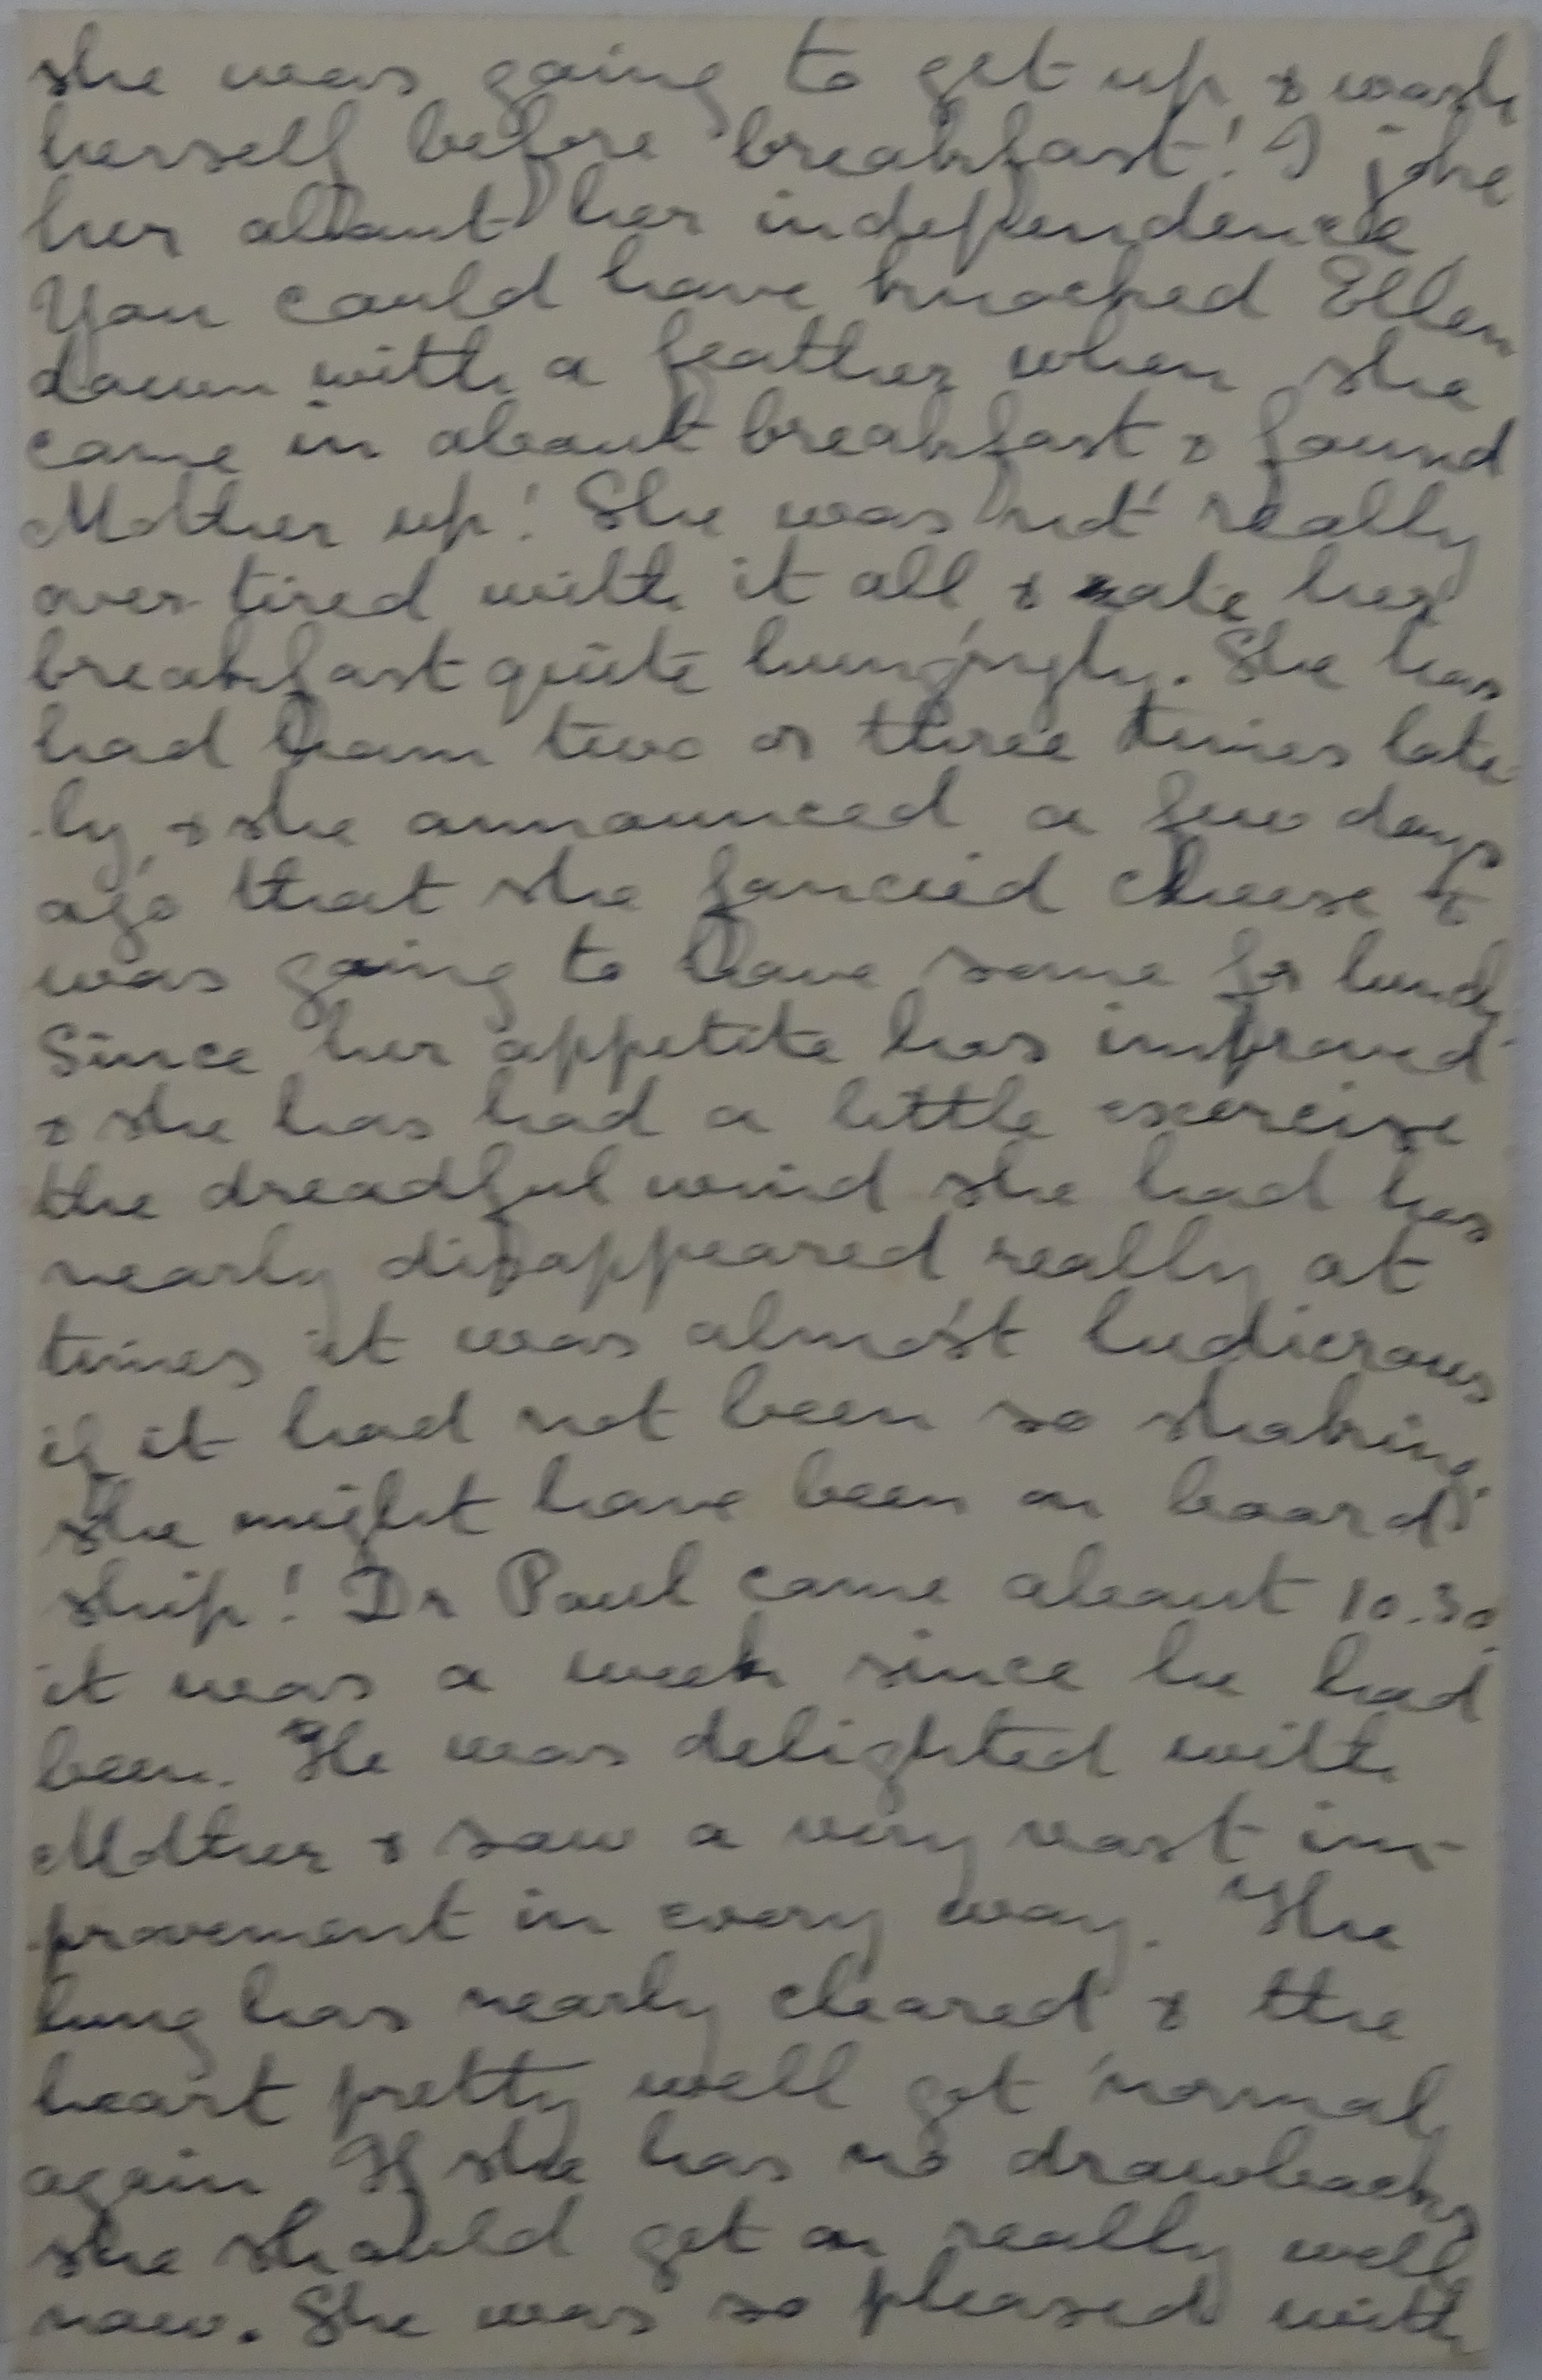 she was going to get up & wash
herself before breakfast! I joke
her about her independence
You could have knocked Ellen
down with a feather when she
came in about breakfast & found
Mother up! She was not really
over-tired with it all & ate her
breakfast quite hungrygly. She has
had ham two or three times late-
-ly, & she announced a few days
ago that she fancied cheese &
was going to have some for lunch.
Since her appetite has improved
& she has had a little exercise
the dreadful wind she had has
nearly disappeared really at
times it was almost ludicrous
if it had not been so shaking.
She might have been on board
ship! Dr Paul came about 10.30.
it was a week since he had
been. He was delighted with
Mother & saw a very vast im-
-provement in every way. The
lung has nearly cleared & the
heart pretty well got normal
again If she has no drawbacks
she should get on really well
now. She was so pleased with